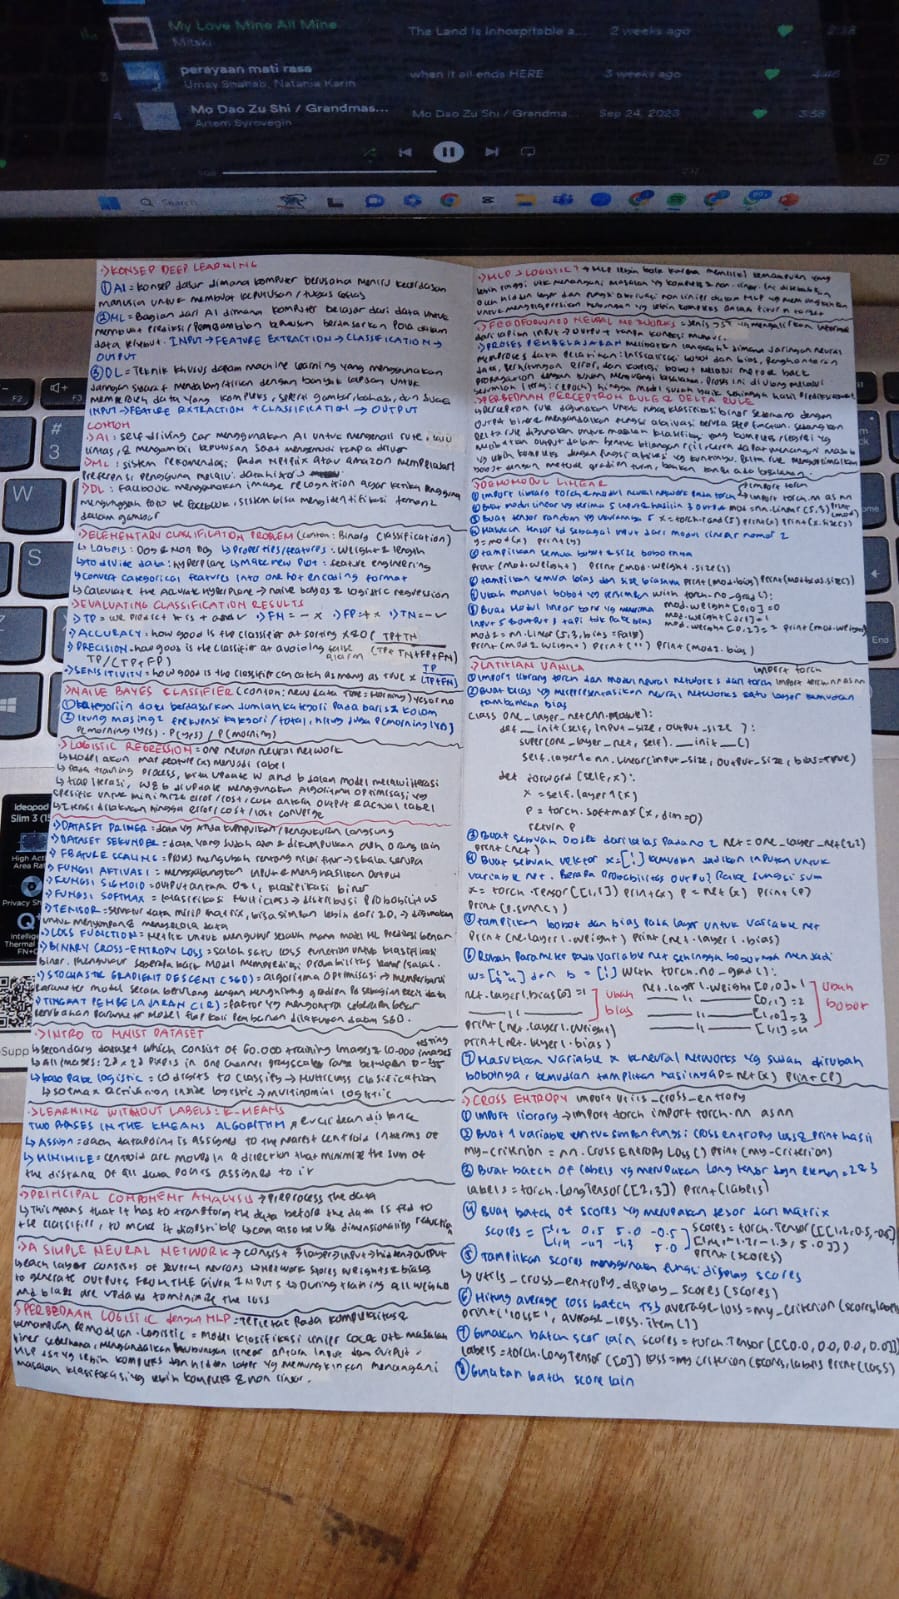 My Love Mine All Mine
Mitski
The Land Is Inhospitable a...
2 weeks ago
2:18
perayaan mati rasa
Umay Shahab, Natania Karin
when it all ends HERE
3 weeks ago
Mo Dao Zu Shi / Grandmas...
Artem Syrovegin
Mo Dao Zu Shi / Grandma...
Sep 24, 2023
3:58
Search
KONSEP DEEP LEARNING
① AI = konsep dasar dimana komputer berusaha meniru kecerdasan
manusia untuk membuat keputusan / tugas cerdas
② ML = Bagian dari AI dimana komputer belajar dari data untuk
membuat prediksi / pengambilan keputusan berdasarkan pola dalam
data tersebut. INPUT → FEATURE EXTRACTION → CLASSIFICATION →
OUTPUT
③ DL = Teknik khusus dalam machine learning yang menggunakan
jaringan syaraf mendalam dengan banyak lapisan untuk
memproses data yang kompleks, seperti gambar, bahasa, dan suara
INPUT → FEATURE EXTRACTION + CLASSIFICATION → OUTPUT
CONTOH
AI: self driving car menggunakan AI untuk mengenali rute,
lintas, & mengambil keputusan saat mengemudi tanpa driver
ML: sistem rekomendasi pada Netflix atau amazon mempelajari
preferensi pengguna melalui data
DL: Facebook menggunakan image recognition agar ketika pengguna
mengunggah foto ke Facebook, sistem bisa mengidentifikasi teman2
dalam gambar
ELEMENTARY CLASSIFICATION PROBLEM (contoh: Binary Classification)
↳ Labels: Dog & Non Dog ↳ properties/features: weight & length
↳ to divide data: hyperplane ↳ make new plot: feature engineering
↳ convert categorical features into one hot encoding format
↳ Calculate the accurate hyperplane → naive bayes & logistic regression
EVALUATING CLASSIFICATION RESULTS
ACCURACY: how good is the classifier at sorting
TP+TN
(TP+TN+FP+FN)
PRECISION: how good is the classifier at avoiding false
alarm
TP/(TP+FP)
SENSITIVITY: how good is the classifier can catch as many as true
TP
(TP+FN)
NAIVE BAYES CLASSIFIER (contoh: new data Time: Morning) yes or no
① kategoriin data berdasarkan jumlah kategori pada baris & kolom
② itung masing2 frekuensi kategori / total, hitung juga P(morning|yn)
P(morning|yes) . P(yes) / P(morning)
LOGISTIC REGRESSION = one neuron neural network
↳ Model akan map feature (x) menjadi label
↳ pada training process, kita update W and b dalam model melalui iterasi
↳ tiap iterasi, W & b diupdate menggunakan algoritma optimisasi yg
spesifik untuk minimize error / cost, cost antara output & actual label
↳ Iterasi dilakukan hingga error / cost / lost converge
DATASET PRIMER = data yg anda kumpulkan / pengukuran langsung
DATASET SEKUNDER = data yang sudah ada & dikumpulkan oleh orang lain
FEATURE SCALING = proses mengubah rentang nilai fitur → skala serupa
FUNGSI AKTIVASI = menggabungkan input & menghasilkan output
FUNGSI SIGMOID = output antara 0 & 1, klasifikasi biner
FUNGSI SOFTMAX = klasifikasi multiclass → distribusi probabilitas
TENSOR = struktur data mirip matrix, bisa simpan lebih dari 2D, → digunakan
untuk menyimpan & mengelola data
LOSS FUNCTION = metrik untuk mengukur sejauh mana model ML prediksi benar
BINARY CROSS-ENTROPY LOSS = salah satu loss function untuk klasifikasi
biner. mengukur seberapa baik model memprediksi probabilitas benar / salah.
STOCHASTIC GRADIENT DESCENT (SGD) = algoritma optimisasi → memperbarui
parameter model secara berulang dengan menghitung gradien pd sebagian kecil data
TINGKAT PEMBELAJARAN (LR) = faktor yg mengontrol seberapa besar
perubahan parameter model tiap kali pembaruan dilakukan dalam SGD.
INTRO TO MNIST DATASET
↳ secondary dataset which consist of 60.000 training images & 10.000 testing images
↳ All images: 28 x 28 pixels in one channel grayscale, range between 0-255
↳ kalo pake logistic = 10 digits to classify → multiclass classification
↳ softmax activation inside logistic → multinomial logistic
LEARNING WITHOUT LABELS: K-MEANS
TWO PHASES IN THE KMEANS ALGORITHM, eucidean distance
↳ Assign = each datapoint is assigned to the nearest centroid in terms of
↳ MINIMIZE = centroid are moves in a direction that minimize the sum of
the distance of all data points assigned to it
PRINCIPAL COMPONENT ANALYSIS → preprocess the data
↳ This means that it has to transform the data before the data is fed to
the classifier, to make it digestible ↳ can also be used dimensionality reduction
A SIMPLE NEURAL NETWORK → consist 3 layer → input → hidden → output
↳ each layer consists of several neurons where work stores weights & biases
to generate outputs FROM THE GIVEN INPUTS ↳ During training all weight
and biases are updated to minimize the loss
PERBEDAAN LOGISTIC dengan MLP = terletak pada kompleksitas &
kemampuan pemodelan. Logistic = model klasifikasi linier cocok utk masalah
biner sederhana, mengandalkan hubungan linear antara input dan output.
MLP JST yg lebih kompleks dgn hidden layer yg memungkinkan menangani
masalah klasifikasi yg lebih kompleks & non linier.
MLP > LOGISTIC? → MLP lebih baik karena memiliki kemampuan yang
lebih tinggi utk menangani masalah yg kompleks & non-linier. Ini disebabkan
oleh hidden layer dan fungsi aktivasi non linier dalam MLP yg memungkinkan
untuk merepresentasikan hubungan yg lebih kompleks antar fitur n target
FEEDFORWARD NEURAL NETWORKS = jenis JST yg mengalirkan informasi
dari lapisan input → output tanpa koneksi mundur.
PROSES PEMBELAJARAN melibatkan langkah2 dimana jaringan neural
memproses data pelatihan: inisialisasi bobot dan bias, penghantaran
data, perhitungan error, dan koreksi bobot melalui metode back
propagation dengan tujuan mengurangi kesalahan. proses ini diulang melalui
sejumlah iterasi (epoch) hingga model
PERBEDAAN PERCEPTRON RULE & DELTA RULE
Perceptron rule digunakan untuk tugas klasifikasi biner sederhana dengan
output biner & mengandalkan fungsi aktivasi berupa step function. sedangkan
Delta rule digunakan untuk masalah klasifikasi yang kompleks / regresi yg
melibatkan output dalam bentuk bilangan riil, serta dapat menangani masalah
yg lebih kompleks dengan fungsi aktivasi yg kontinyu. Delta rule mengoptimalkan
bobot dengan metode gradien turun,
DEMO MODUL LINEAR
import torch
① import library torch & modul neural network pada torch → import torch.nn as nn
② Buat modul linear yg terima 5 input & hasilin 3 output mod = nn.Linear(5,3) print(mod)
③ Buat tensor random yg ukurannya 5 x = torch.rand(5) print(x) print(x.size())
④ Masukan tensor td sebagai input dari modul linear nomor 2
y = mod(x) print(y)
⑤ tampilkan semua bobot & size bobotnya
print(mod.weight) print(mod.weight.size())
⑥ tampilkan semua bias dan size biasnya print(mod.bias) print(mod.bias.size())
⑦ Ubah manual bobot yg pertama with torch.no_grad():
mod.weight[0,0] = 0
mod.weight[0,1] = 1
mod.weight[0,2] = 2 print(mod.weight)
⑧ Buat modul linear baru yg menerima
input 5 & output 3 tapi tdk pake bias
mod2 = nn.Linear(5,3, bias=False)
print(mod2.weight) print("") print(mod2.bias)
LATIHAN VANILA
import torch
① Import library torch dan modul neural networks dari torch import torch.nn as nn
② Buat kelas yg merepresentasikan neural networks satu layer kemudian
tambahkan bias
class one_layer_net(nn.Module):
def __init__(self, input_size, output_size):
super(one_layer_net, self).__init__()
self.layer1 = nn.Linear(input_size, output_size, bias=True)
def forward(self, x):
x = self.layer1(x)
p = torch.softmax(x, dim=0)
return p
③ Buat sebuah objek dari kelas pada no 2 net = one_layer_net(2,2)
print(net)
④ Buat sebuah vektor x = [1 1] kemudian jadikan inputan untuk
variable net. Berapa probabilitas output? Pake fungsi sum
x = torch.tensor([1.,1.]) print(x) p = net(x) print(p)
print(p.sum())
⑤ tampilkan bobot dan bias pada layer untuk variable net
print(net.layer1.weight) print(net.layer1.bias)
⑥ Rubah parameter pada variable net sehingga bobotnya menjadi
w = [1 2 3 4] dan b = [1 1] with torch.no_grad():
net.layer1.bias[0] = 1
Ubah
bias
net.layer1.weight[0,0] = 1
[0,1] = 2
[1,0] = 3
[1,1] = 4
Ubah
bobot
print(net.layer1.weight)
print(net.layer1.bias)
⑦ Masukkan variable x ke neural networks yg sudah dirubah
bobotnya, kemudian tampilkan hasilnya p = net(x) print(p)
CROSS ENTROPY → import utils_cross_entropy
① import library → import torch import torch.nn as nn
② Buat 1 variable untuk simpan fungsi cross entropy loss & print hasil
my_criterion = nn.CrossEntropyLoss() print(my_criterion)
③ Buat batch of labels yg merupakan long tensor dgn elemen = 2 & 3
labels = torch.LongTensor([2,3]) print(labels)
④ Buat batch of scores yg merupakan tensor dari matrix
scores = [
0.5 5.0 -0.5
5.0
]
scores = torch.Tensor([[
print(scores)
⑤ Tampilkan scores menggunakan fungsi display scores
↳ utils_cross_entropy.display_scores(scores)
⑥ Hitung average loss batch tsb average_loss = my_criterion(scores, labels)
print('loss =', average_loss.item())
⑦ Gunakan batch scor lain scores = torch.Tensor([[0.0, 0.0, 0.0, 0.0]])
labels = torch.LongTensor([0]) loss = my_criterion(scores, labels) print(loss)
⑧ Gunakan batch score lain
Ideapad
Slim 3